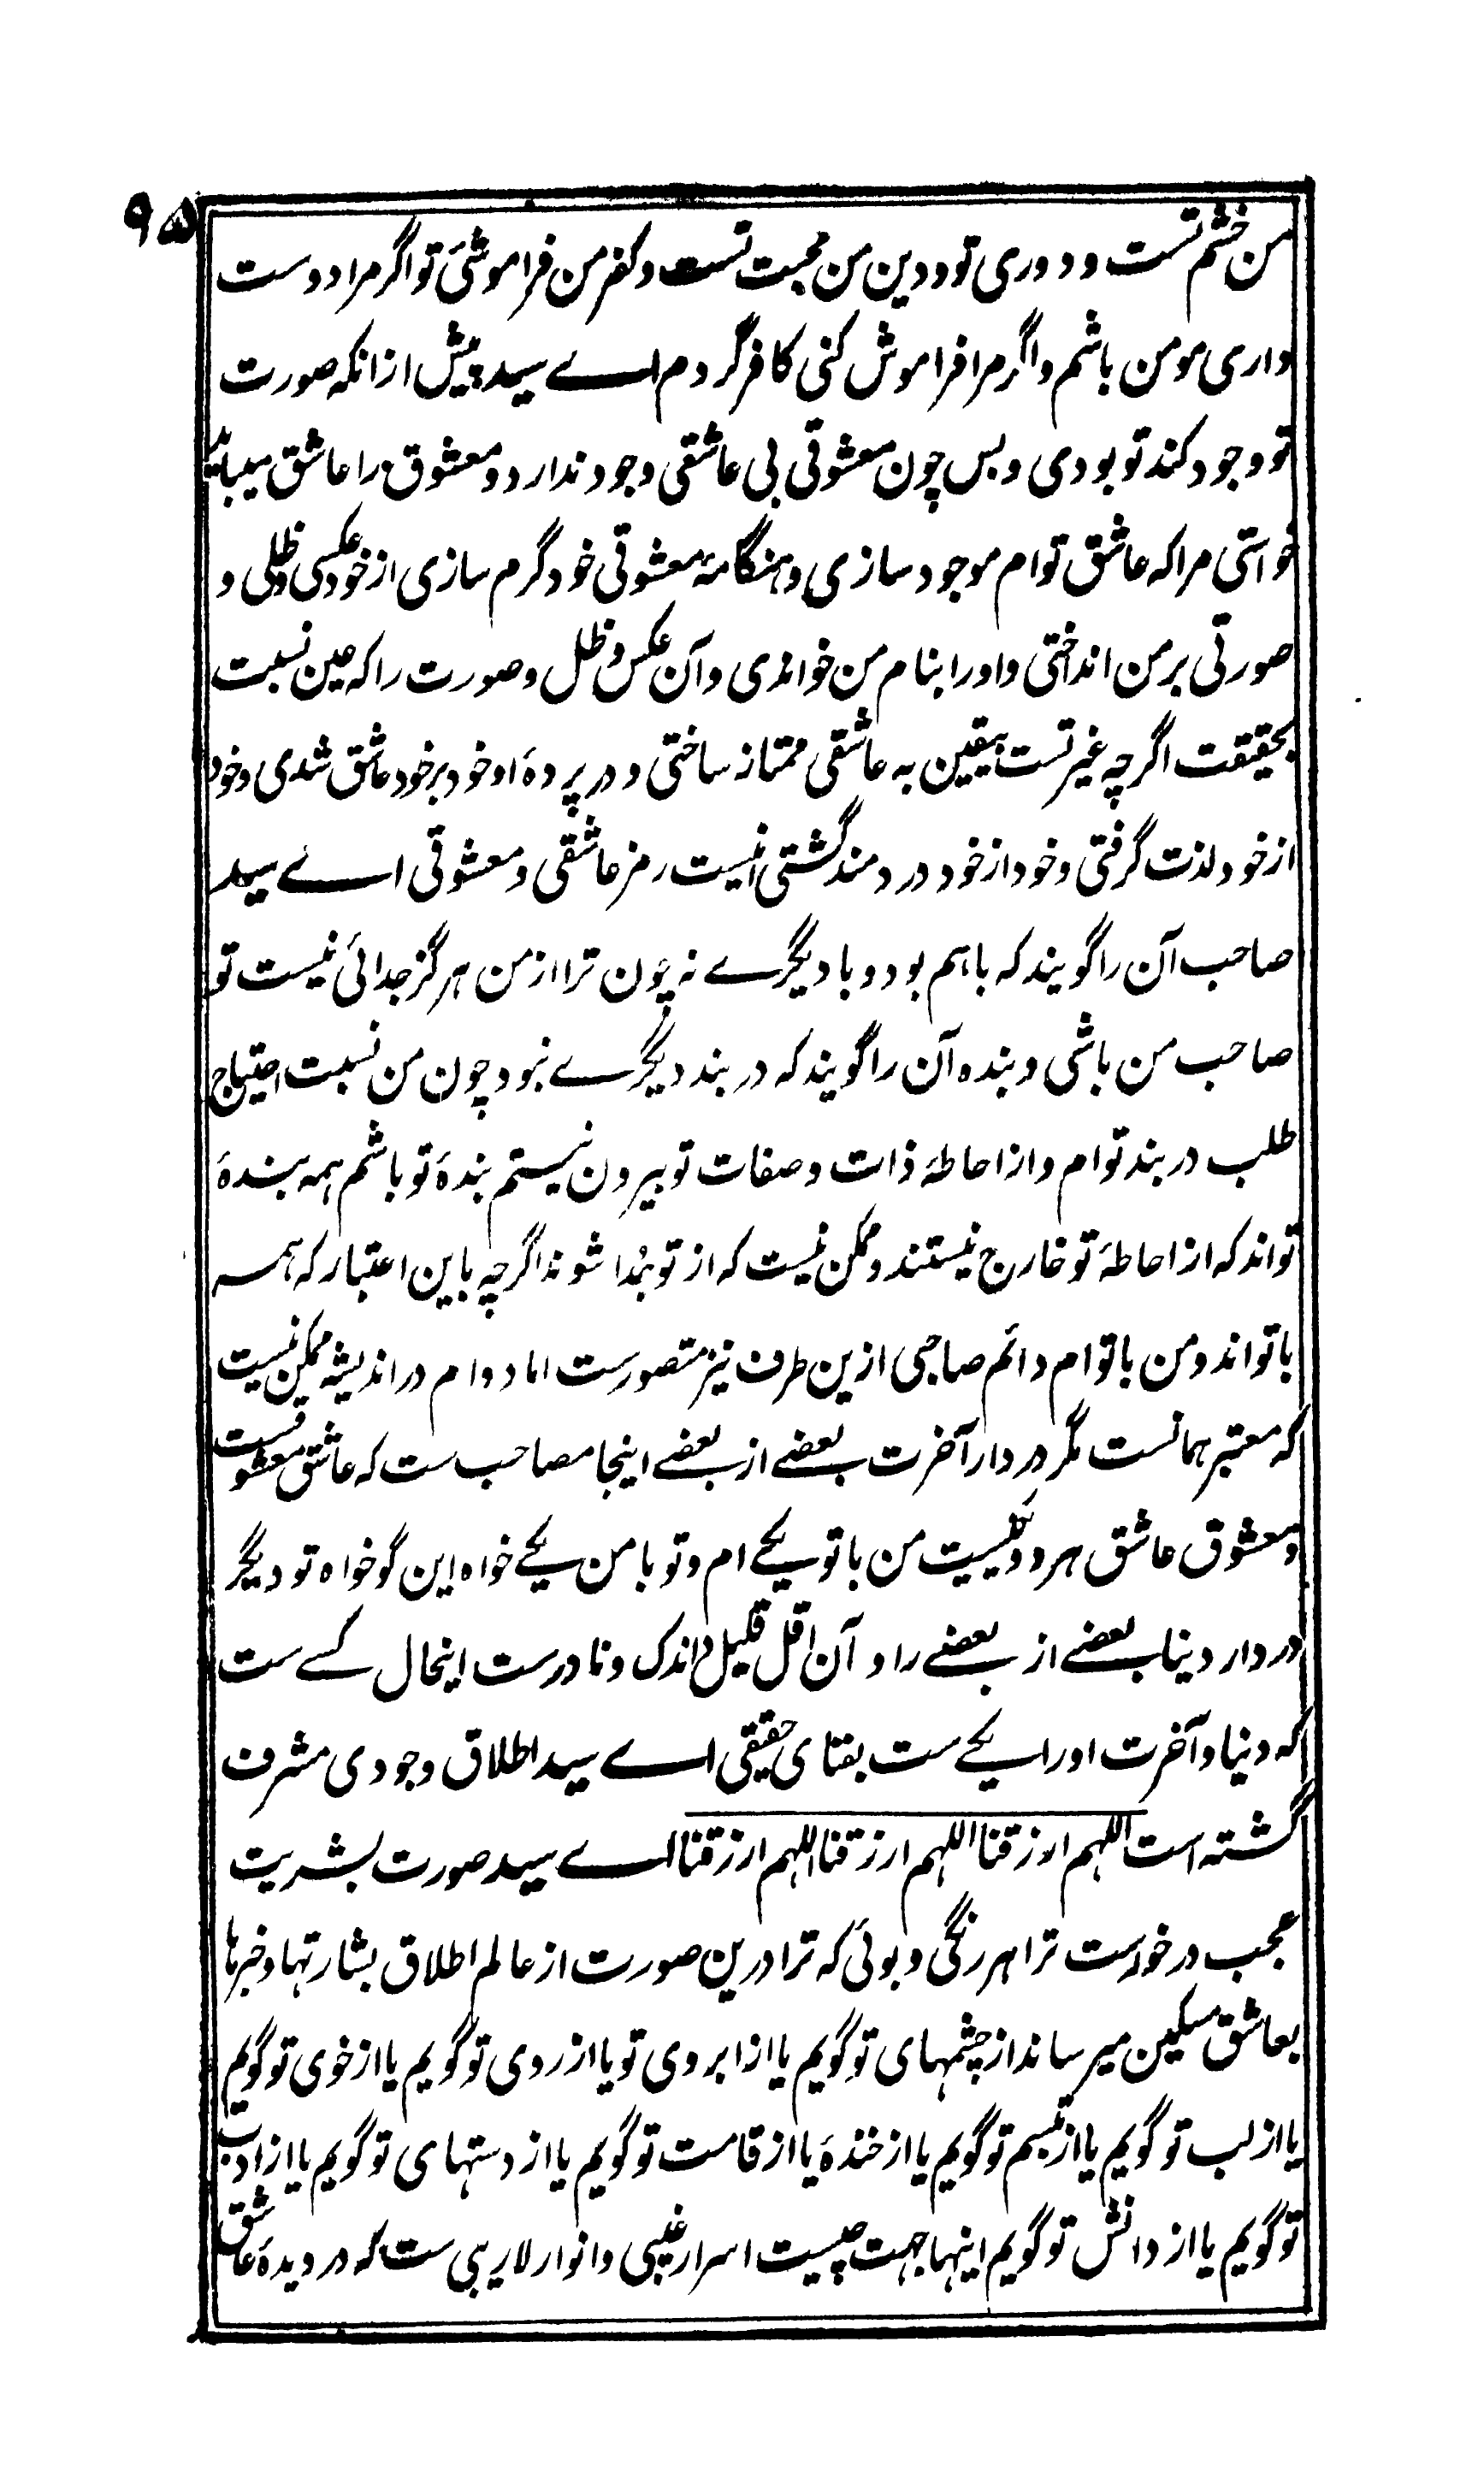 ۹۵
من خشم تست و دوری تو و دین من محبت تست و کفر من فراموشئ تو اگر مرا دوست
داری مومن باشم و اگر مرا فراموش کنی کافر گردم اے سید پیش ازانکه صورت
تو وجود کند تو بودی و بس چون معشوقی بی عاشقی وجود ندارد و معشوق را عاشق میباید
خواستی مرا که عاشق توام موجود سازی و هنگامۀ معشوقی خود گرم سازی از خود عکسی و ظلی و
صورتی بر من انداختی و او را بنام من خواندی و آن عکس و ظل و صورت را که عین نسبت
بحقیقت اگرچه غیر تست بیقین به عاشقی ممتاز ساختی و در پردۀ او خود بر خود عاشق شدی و خود
از خود لذت گرفتی و خود از خود دردمند گشتی انیست رمز عاشقی و معشوقی اے سید
صاحب آن را گویند که با هم بود و با دیگرے نه چون ترا از من هرگز جدائی نیست تو
صاحب من باشی و بنده آن را گویند که در بند دیگرے نبود چون من نسبت احتیاج
طلب در بند توام و از احاطۀ ذات و صفات تو بیرون نیستم بندۀ تو باشم همه بندۀ
تو اند که از احاطۀ تو خارج نیستند و ممکن نیست که از تو جُدا شوند اگرچه باین اعتبار که همه
با تو اند و من با توام دائم صاحبی ازین طرف نیز متصورست اما دوام در اندیشه ممکن نیست
که معتبر همانست مگر در دار آخرت بعضے از بعضے اینجا مصاحب ست که عاشق معشوقست
و معشوق عاشق هر دو یکیست من با تو یکے ام و تو با من یکے خواه این گو خواه تو دیگر
در دار دینا بعضے از بعضے را و آن اقل قلیل و اندک و نادرست اینحال کسے ست
که دنیا و آخرت او را یکے ست بقتای حقیقی اے سید اطلاق وجودی مشرف
گشته است اللهم ارزقنا اللهم ارزقنا اللهم ارزقنا اے سید صورت بشریت
عجب در خورست ترا هر رنگی و بوئی که ترا درین صورت از عالم اطلاق بشارتها و خبرها
بعاشق مسکین میرساند از چشمهای تو گویم یا از ابروی تو یا از روی تو گویم یا از خوی تو گویم
یا از لب تو گویم یا از تبسم تو گویم یا از خندۀ یا از قامت تو گویم یا از دستهای تو گویم یا از ادب
تو گویم یا از دانش تو گویم اینها جهت چیست اسرار غیبی و انوار لاریبی ست که در دیدۀ عاشق